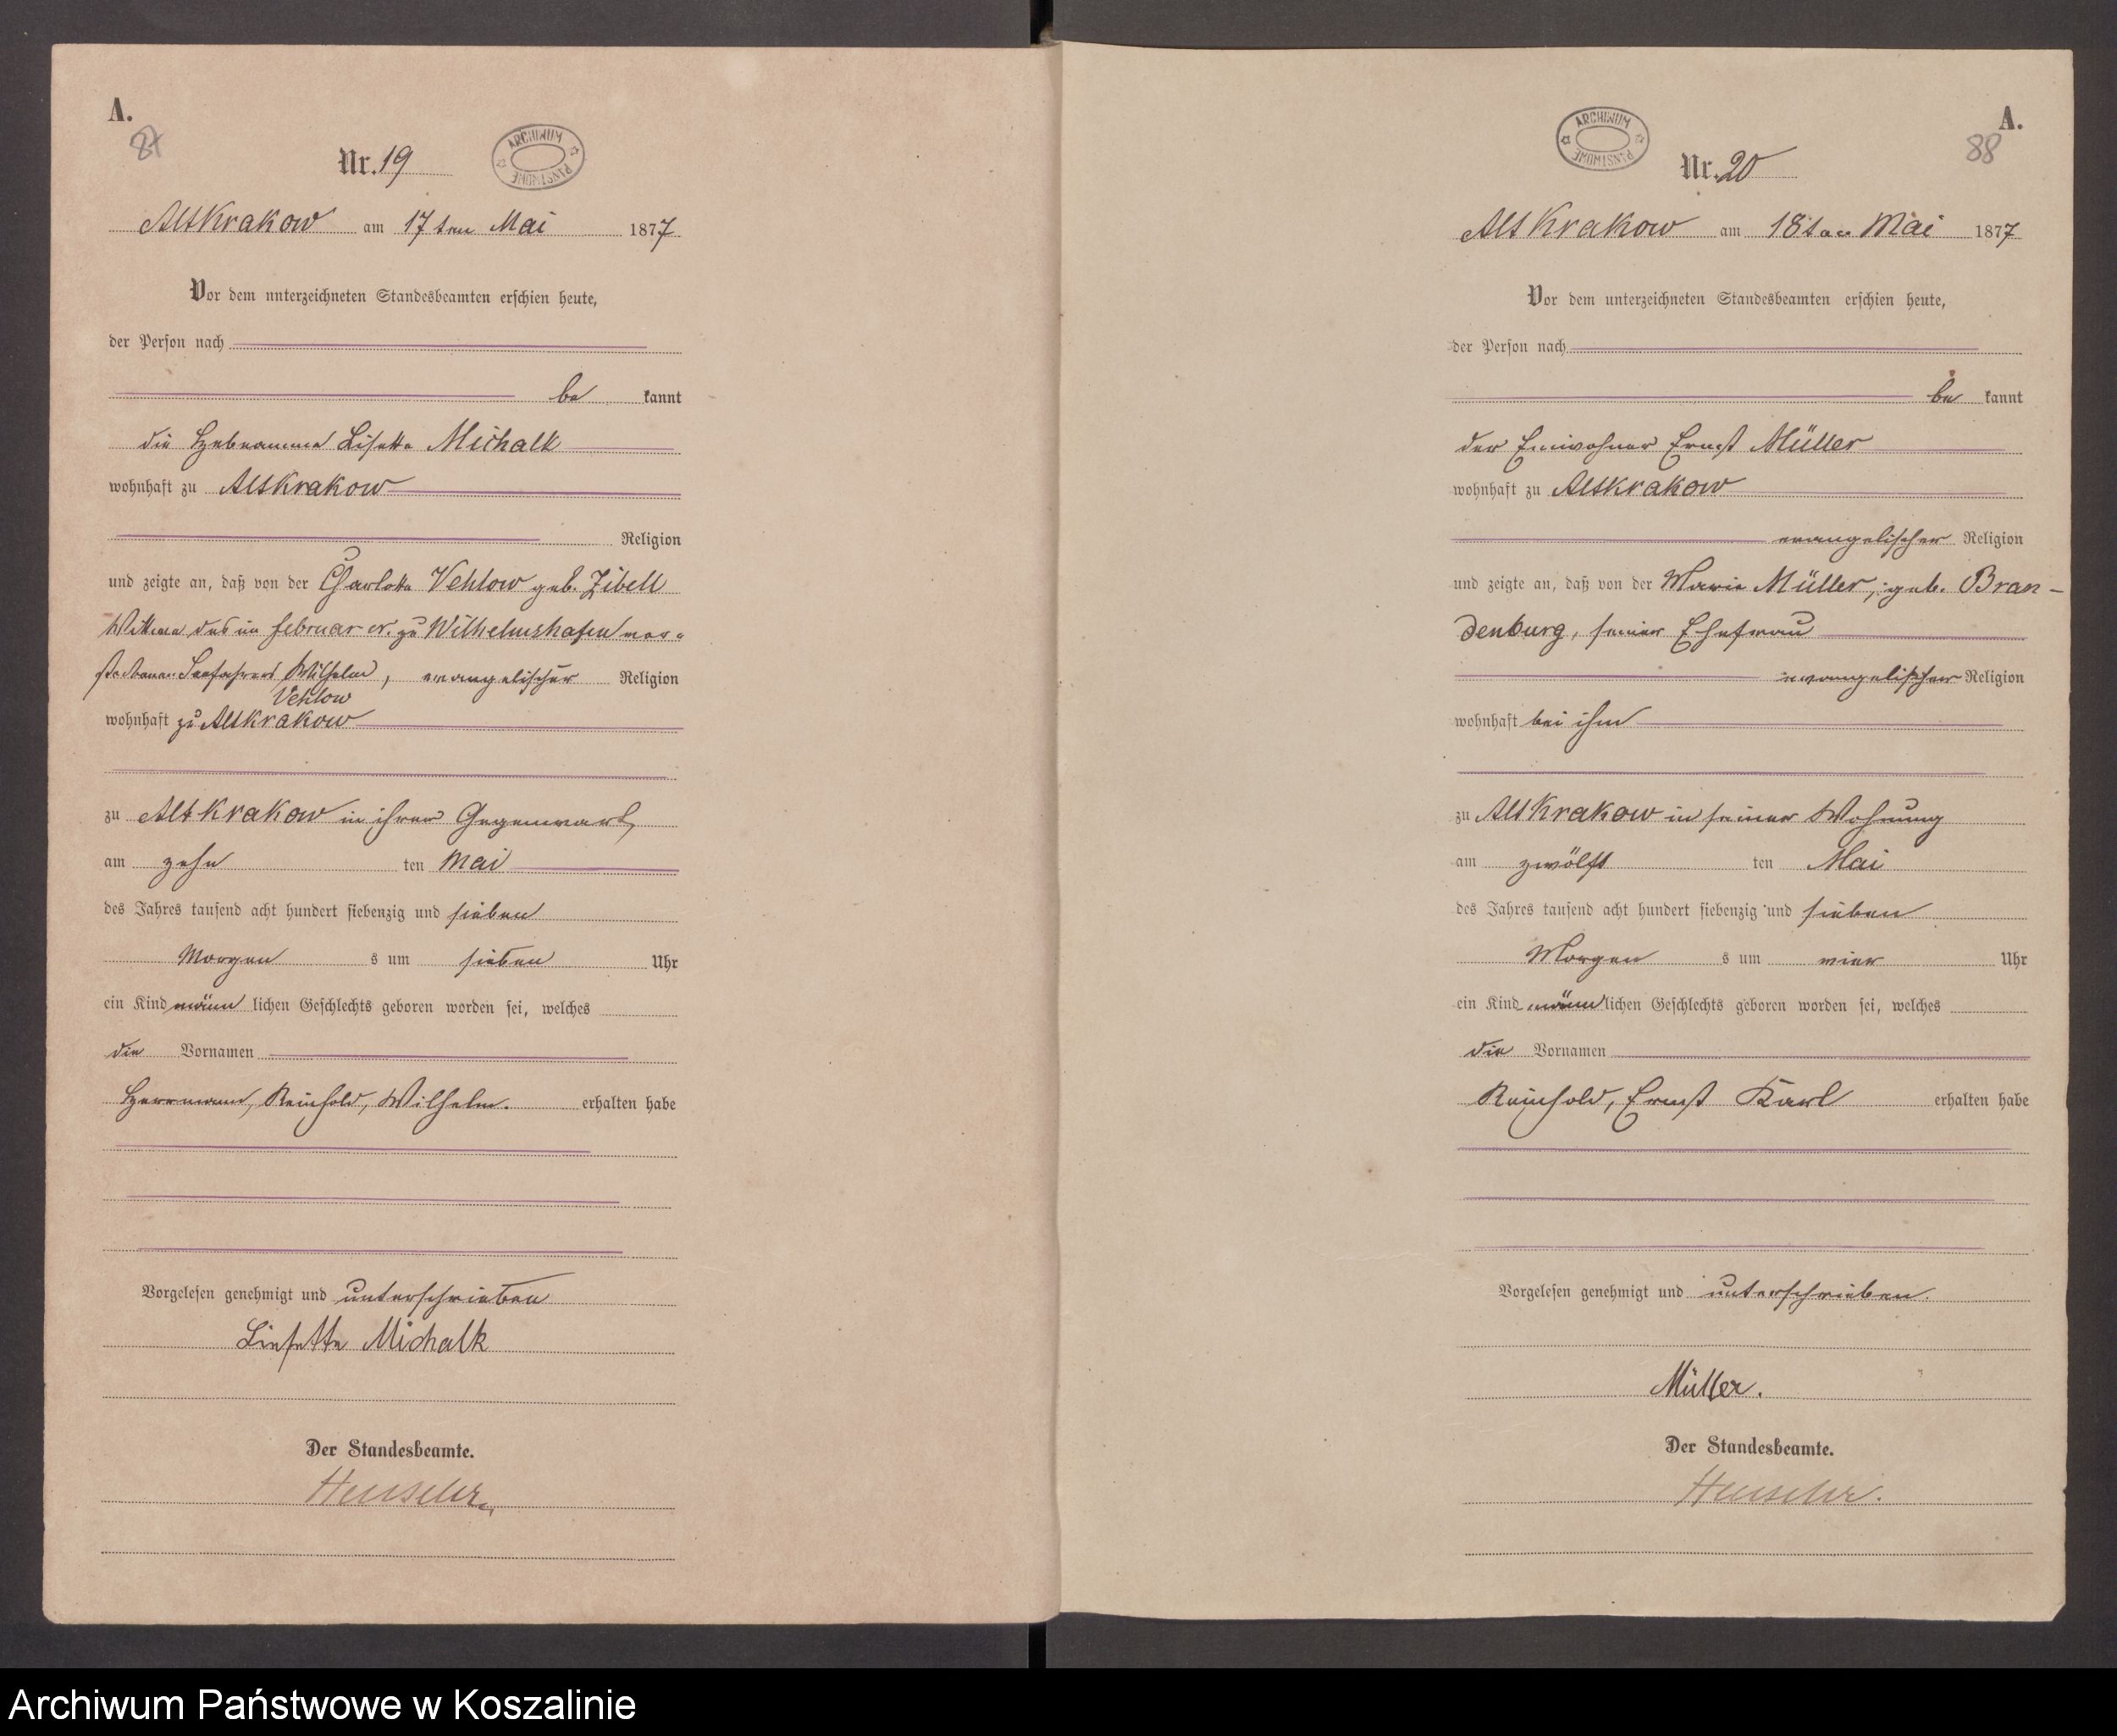 A.
87
Nr. 19
ARCHIWUM PAŃSTWOWE
Altkrakow am 17ten Mai 1877
Vor dem unterzeichneten Standesbeamten erschien heute,
der Person nach
be kannt
die Hebeamme Lisette Michalk
wohnhaft zu Altkrakow
Religion
und zeigte an, daß von der Charlotte Vehlow geb. Zibell
Wittwe des im Februar cr. zu Wilhelmshafen ver-
storbenen Seefahrers Wilhelm, evangelischer Religion
Vehlow
wohnhaft zu Altkrakow
zu Altkrakow in ihrer Gegenwart,
am zehn ten Mai
des Jahres tausend acht hundert siebenzig und sieben
Morgen s um sieben Uhr
ein Kind männ lichen Geschlechts geboren worden sei, welches
die Vornamen
Herrmann, Reinhold, Wilhelm. erhalten habe
Vorgelesen genehmigt und unterschrieben
Liesette Michalk
Der Standesbeamte.
A.
88
ARCHIWUM PAŃSTWOWE
Nr. 20
Alt Krakow am 18ten Mai 1877
Vor dem unterzeichneten Standesbeamten erschien heute,
der Person nach
be kannt
der Einwohner Ernst Müller
wohnhaft zu Altkrakow
evangelischer Religion
und zeigte an, daß von der Marie Müller, geb. Bran-
denburg, seiner Ehefrau
evangelischer Religion
wohnhaft bei ihm
zu Alt Krakow in seiner Wohnung
am zwölf ten Mai
des Jahres tausend acht hundert siebenzig und sieben
Morgen s um vier Uhr
ein Kind männlichen Geschlechts geboren worden sei, welches
die Vornamen
Reinhold, Ernst Karl erhalten habe
Vorgelesen genehmigt und unterschrieben.
Müller.
Der Standesbeamte.
Archiwum Państwowe w Koszalinie